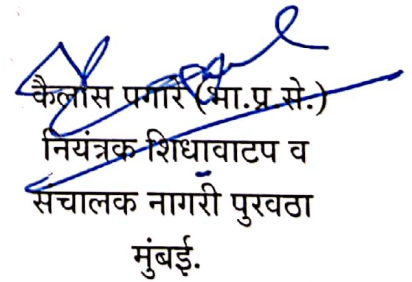 कैलास पगारे (भा.प्र.से.)
नियंत्रक शिधावाटप व
संचालक नागरी पुरवठा
मुंबई.